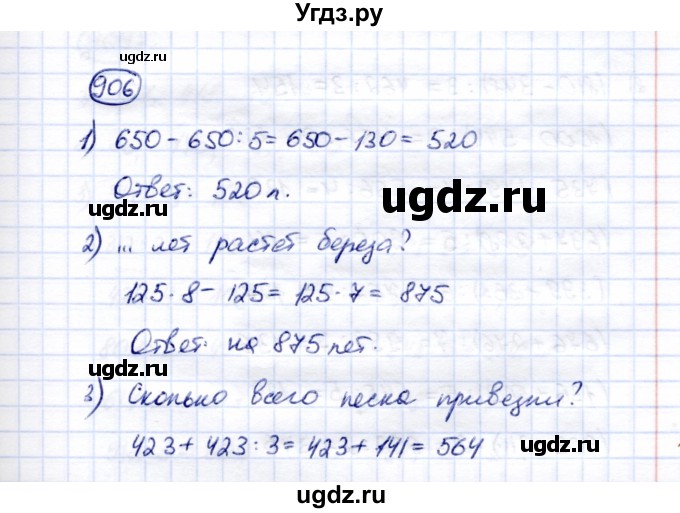 Угдз.ру
ugdz.ru
906
ugdz.ru
1) 650 - 650 : 5 = 650 - 130 = 520
Ответ: 520 л.
ugdz.ru
ugdz.ru
2) ... лет растет береза?
125 · 8 - 125 = 125 · 7 = 875
Ответ: на 875 лет.
ugdz.ru
ugdz.ru
3) Сколько всего песка привезли?
423 + 423 : 3 = 423 + 141 = 564
ugdz.ru
ugdz.ru